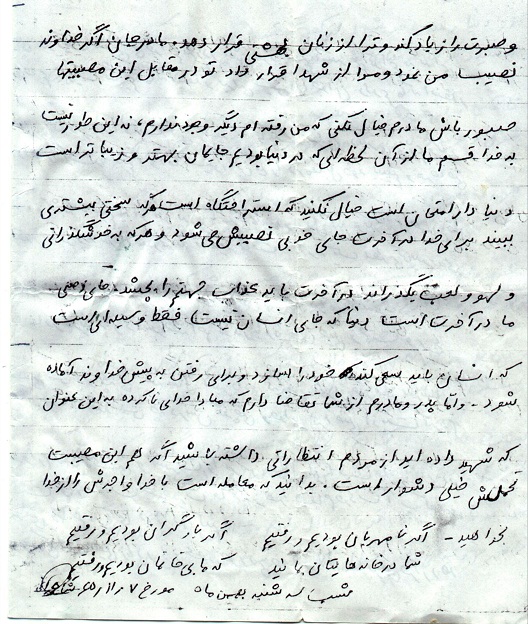 و صبرت را زیاد کند و ترا از زنان بهشتی قرار دهد. مادر جان اگر خداوند
نصیب من نمود و مرا از شهدا قرار داد تو در مقابل این مصیبتها
صبور باش مادرم خیال نکنی که من رفته ام دیگر وجود ندارم، نه این طور نیست
به خدا قسم ما از آن لحظه ای که در دنیا بودیم جایمان بهتر و زیباتر است
دنیا دار امتحان است خیال نکنید که استراحتگاه است هرکه سختی بیشتری
ببیند برای خدا در آخرت جای خوبی نصیبش می شود و هر که به خوشگذرانی
و لهو و لعب بگذراند در آخرت باید عذاب جهنم را بچشد. جای اصلی
ما در آخرت است دنیا که جای انسان نیست، فقط وسیله ای است
که انسان باید سعی کند خود را بسازد و برای رفتن به پیش خداوند آماده
شود. و اما پدر و مادرم از شما تقاضا دارم که مبادا خدای ناکرده به این عنوان
که شهید داده اید از مردم انتظاراتی داشته باشید اگر هم این مصیبت
تحملش خیلی دشوار است. بدانید که معامله است با خدا و اجرش را از خدا
بخواهید - اگر نامهربان بودیم و رفتیم اگر بار گران بودیم و رفتیم
شما در خانه هایتان بمانید که ما بی خانمان بودیم و رفتیم
شب سه شنبه بهمن ماه مورخ ۷/۱۱/